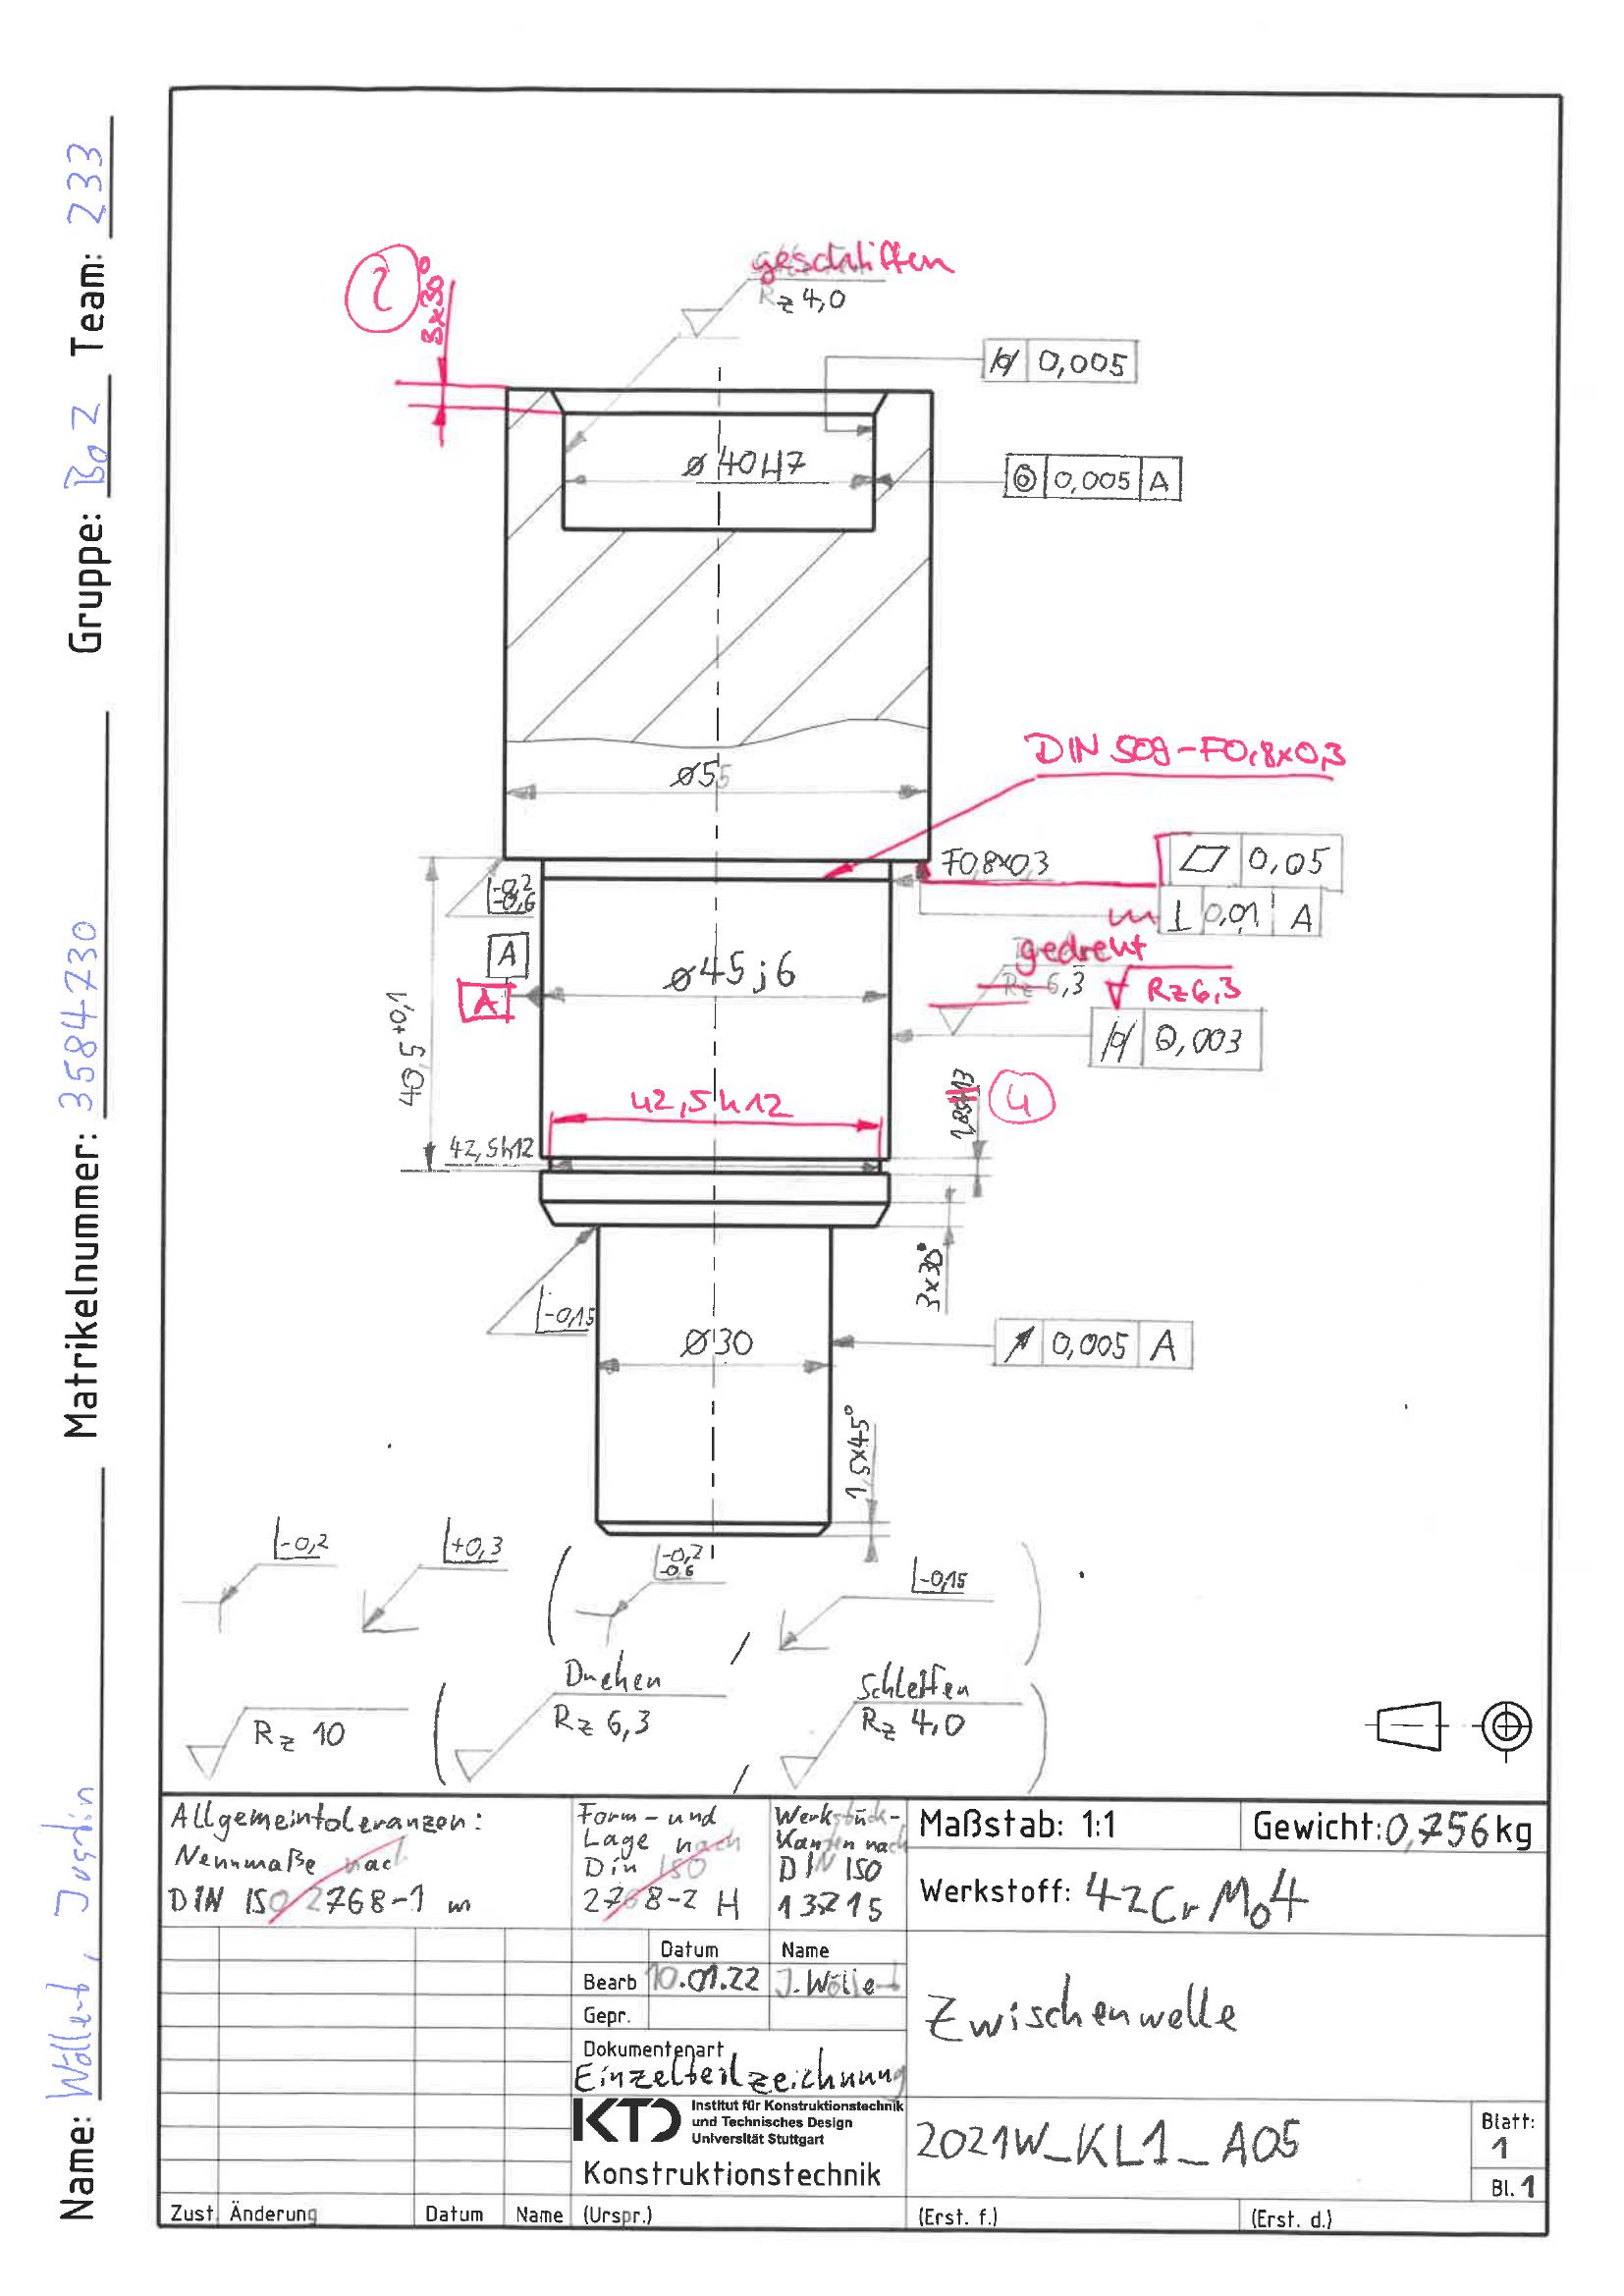 Name: Wöllert, Justin Matrikelnummer: 3584730 Gruppe: Bo2 Team: 233
geschliffen
Rz 4,0
2
3x30°
0,005
⌀40H7
0,005 A
DIN 509-F0,8x0,3
⌀55
F0,8x0,3
0,05
-0,2
-0,6
⊥ 0,01 A
A
gedreht
⌀45j6
Rz 6,3
Rz6,3
A
40,5+0,1
0,003
42,5h12
4
42,5h12
3x30°
-0,15
⌀30
0,005 A
1,5x45°
-0,2
+0,3
-0,2
-0,6
-0,15
Drehen
Schleifen
Rz 10
Rz 6,3
Rz 4,0
Allgemeintoleranzen:
Nennmaße nach
DIN ISO 2768-1 m
Form- und
Lage nach
Din ISO
2768-2 H
Werkstück-
Kanten nach
DIN ISO
13715
Maßstab: 1:1
Gewicht: 0,756 kg
Werkstoff: 42CrMo4
Datum Name
Bearb 10.01.22 J. Wöllert
Gepr.
Zwischenwelle
Dokumentenart
Einzelteilzeichnung
KTD Institut für Konstruktionstechnik
und Technisches Design
Universität Stuttgart
Konstruktionstechnik
2021W_KL1_A05
Blatt:
1
Bl. 1
Zust. Änderung Datum Name (Urspr.) (Erst. f.) (Erst. d.)